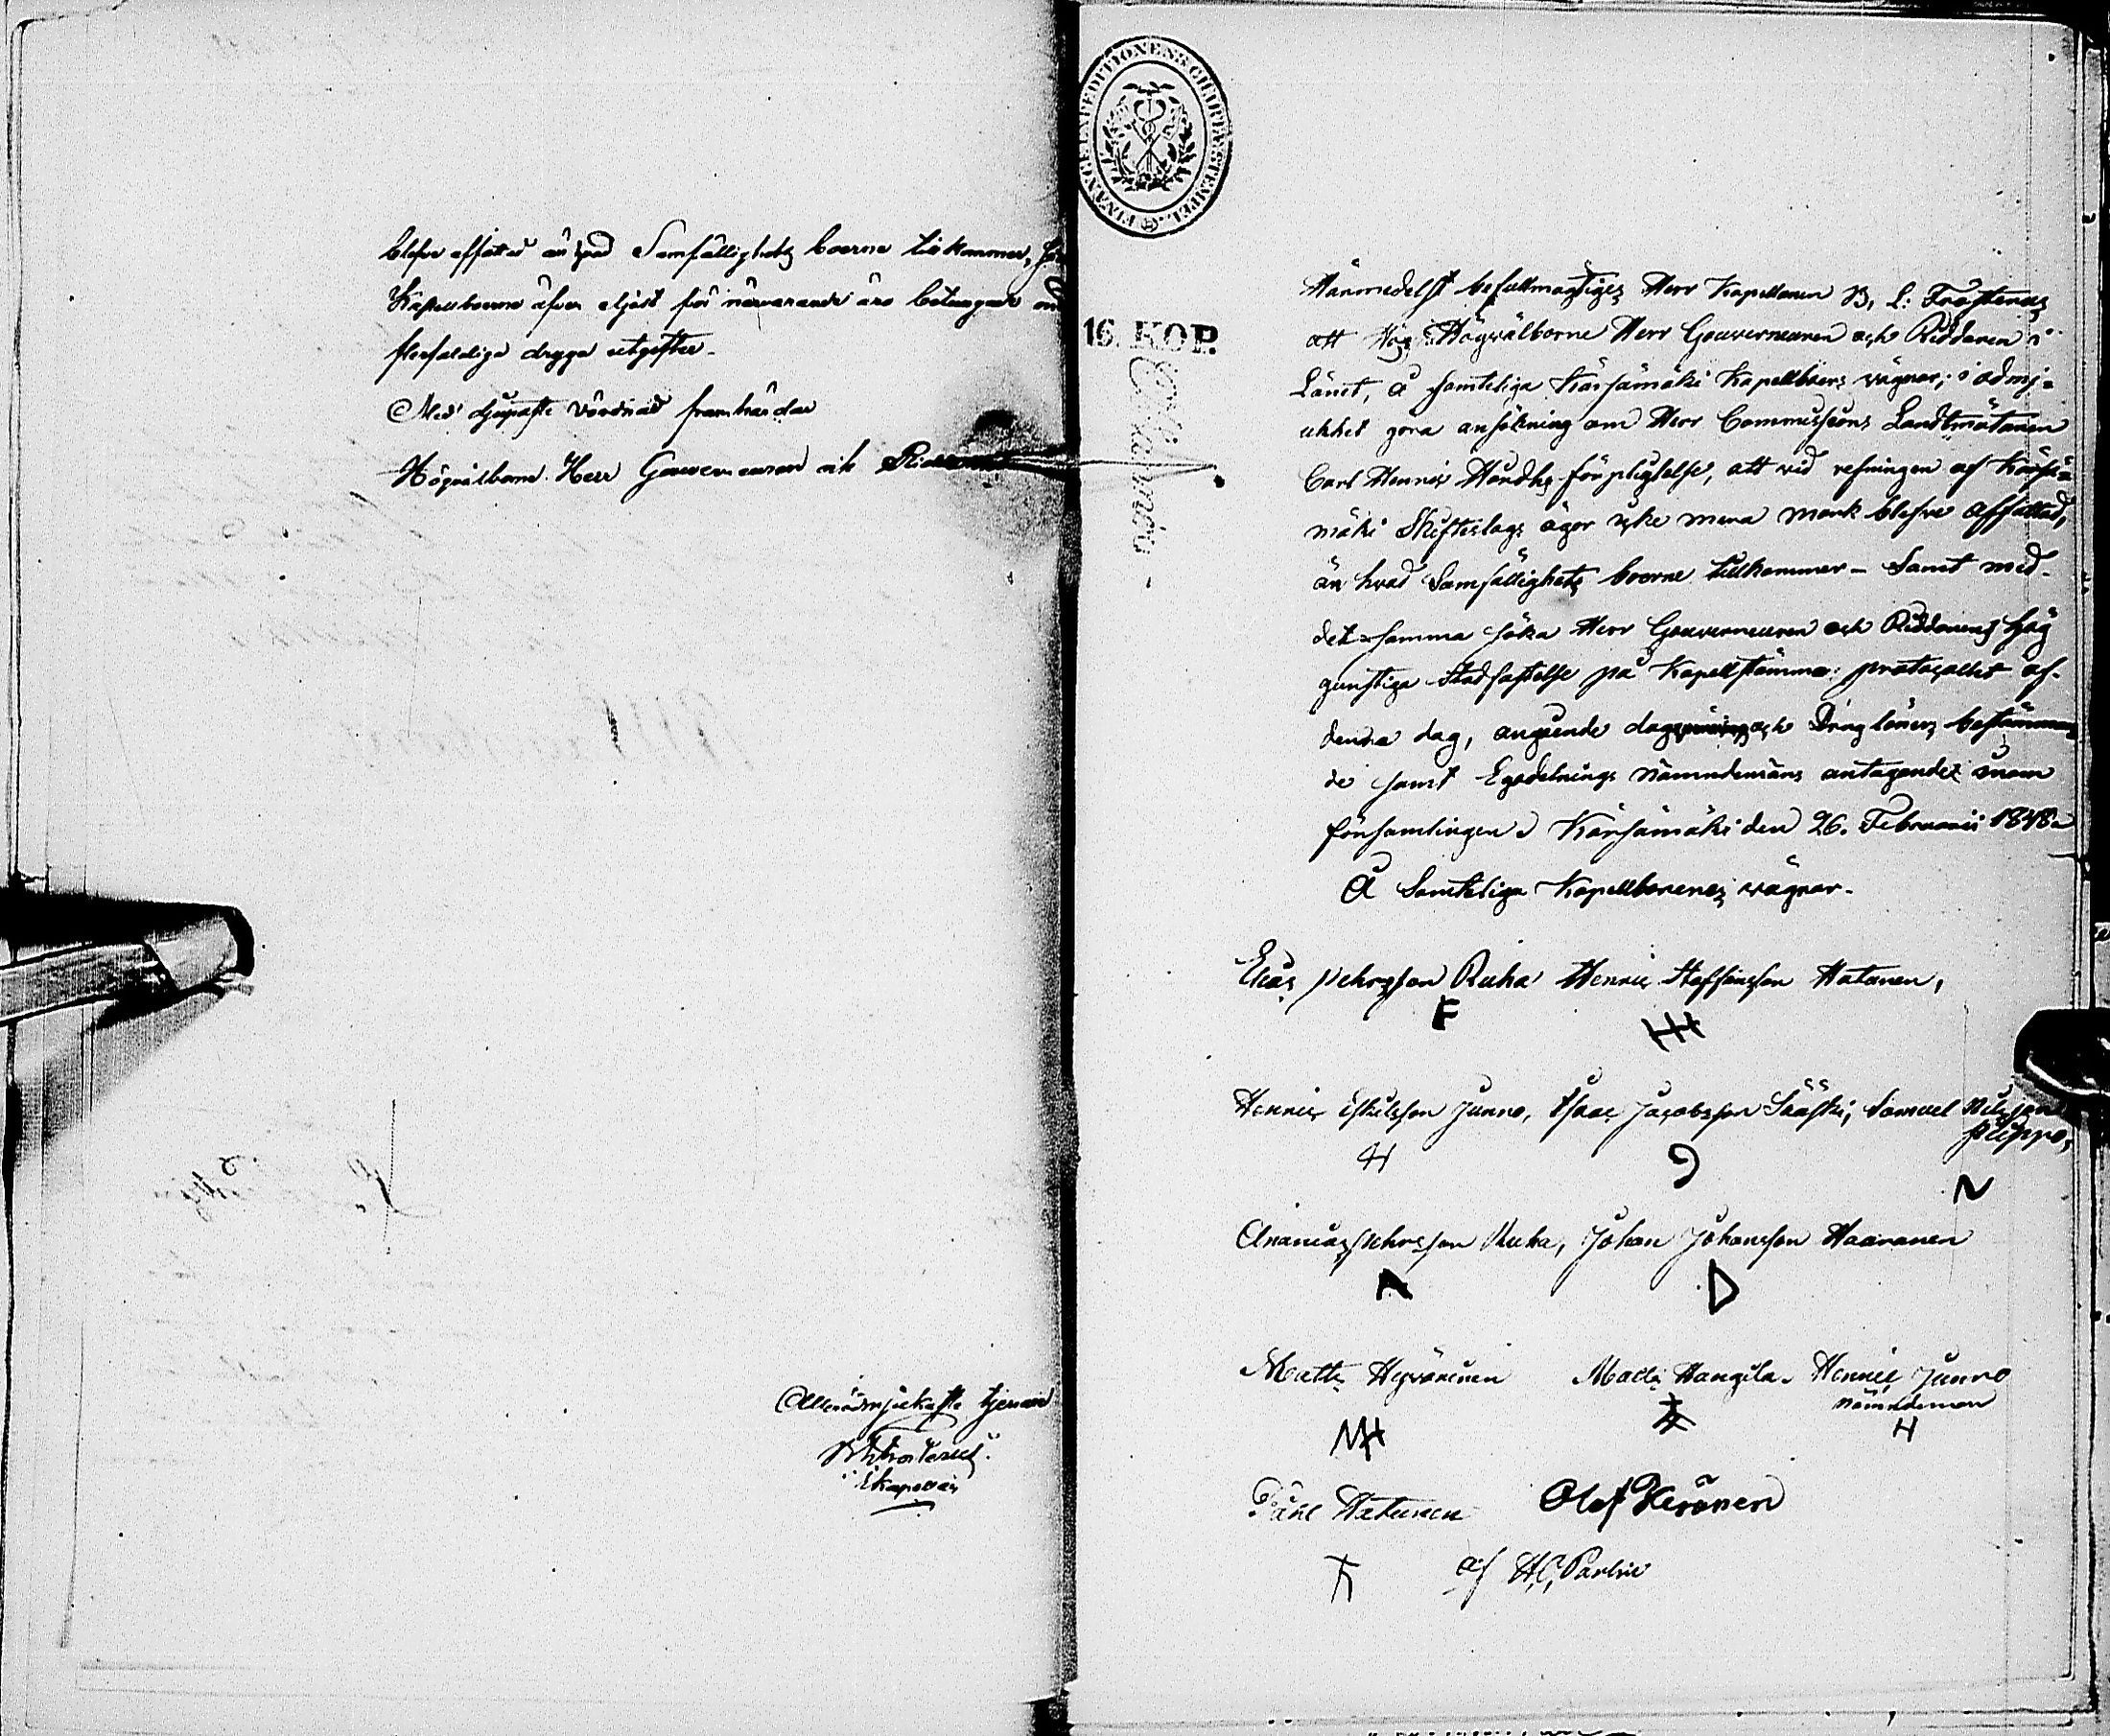 blefve affattad än hvad Samfällighets boerne tillkommer,
Kapellboerne äfven eljest för närvarande äro betungade
flerfaldiga dryga utgifter.
Med djupaste vördnad framhärdar
Högvälborne Herr Gouverneuren och
Allerödmjukaste tjenare
Frosterus
Kapellan
FINANCE EXPEDITIONENS CHARTÆ STEMPEL
16. KOP.
Härmedelst befullmägtiges Herr Kapellanen B. L: Frosterus
att hos Högvälborne Herr Gouverneuren och Riddaren i
Länet, å samteliga Kärsämäki Kapellboers vägnar, i ödmj-
ukhet göra ansökning om Herr Commissions Landtmätaren
Carl Henric Hårdhs förpligtelse, att vid refningen af Kärsä-
mäki Skifteslags ägor icke mera mark blefve affattad,
än hvad Samfällighets boerne tillkommer – Samt med
det samma söka Herr Gouverneuren och Riddarens hög
gunstiga Stadfästelse på Kapellstämmo protocollet af
denna dag, angående och Dräng löners bestämman-
de samt Egodelnings Nämndemäns antagande inom
församlingen. Kärsämäki den 26. Februarii 1848.
Å Samteliga Kapellboernes vägnar.
Elias Pehrsson Ruha Henric Staffansson Hatunen,
F H
Henric Eskilsson Junno, Isaac Jacobsson Sääski, Samuel Nilsson
Pilppo,
H 9 N
Ananias Pehrsson Ruha, Johan Johansson Haaranen
A D
Matts Hyvärinen Matts Hangila. Henric Junno
Nämndeman
MH H
Påhl Hatunen Olof Keränen
af H. C. Parlin